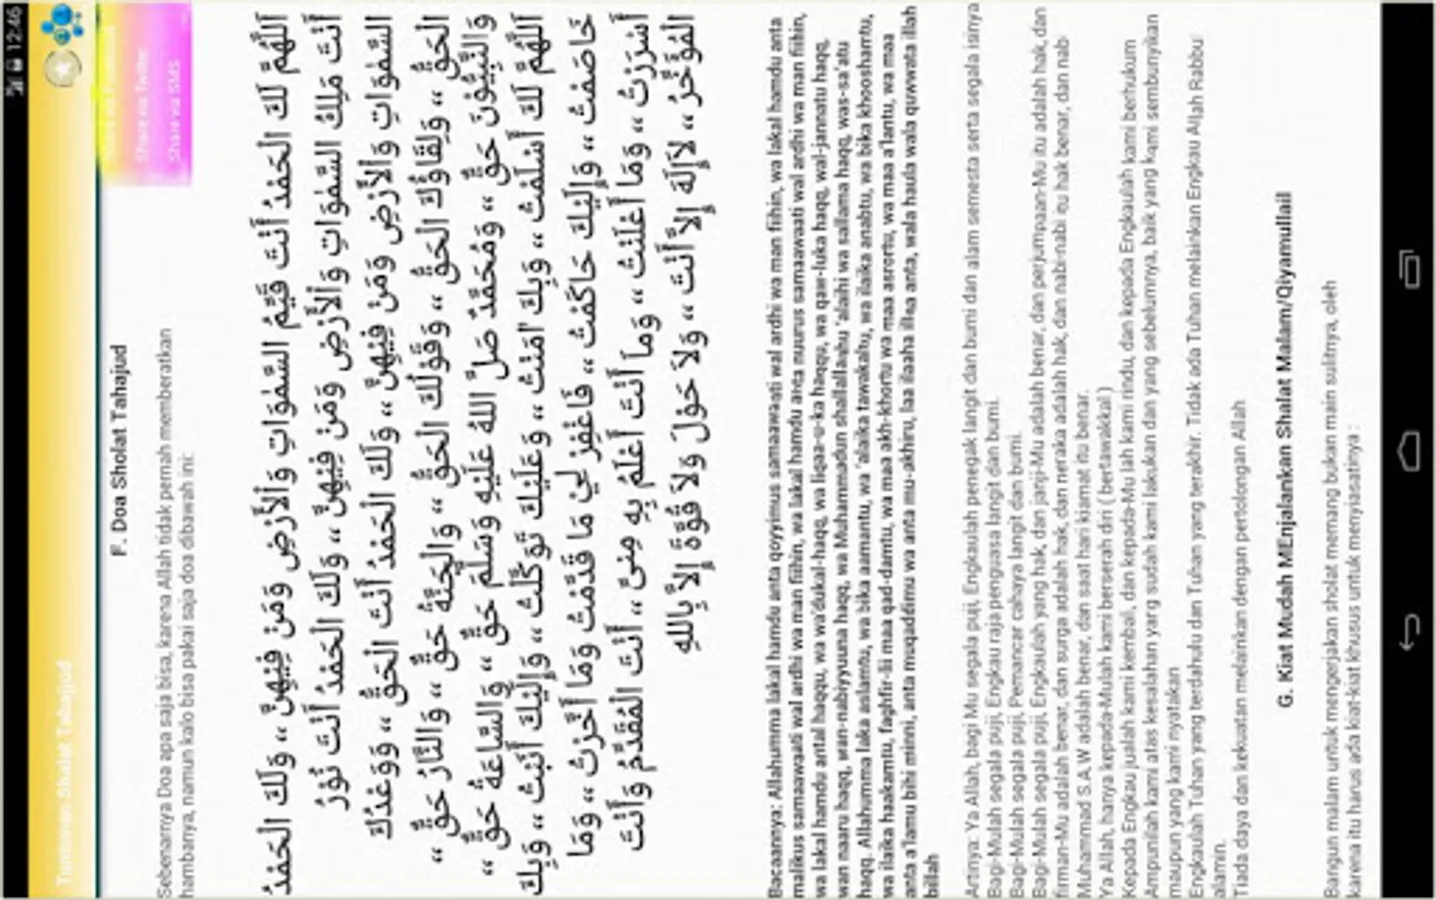 12:46
Tuntunan Shalat Tahajjud
Share via Twitter
Share via SMS
F. Doa Sholat Tahajud
Sebenarnya Doa apa saja bisa, karena Allah tidak pernah memberatkan
hambanya, namun kalo bisa pakai saja doa dibawah ini:
اَللّٰهُمَّ لَكَ الْحَمْدُ أَنْتَ قَيِّمُ السَّمٰوَاتِ وَاْلأَرْضِ وَمَنْ فِيْهِنَّ ،، وَلَكَ الْحَمْدُ
أَنْتَ مَلِكُ السَّمٰوَاتِ وَاْلأَرْضِ وَمَنْ فِيْهِنَّ ،، وَلَكَ الْحَمْدُ أَنْتَ نُوْرُ
السَّمٰوَاتِ وَاْلأَرْضِ وَمَنْ فِيْهِنَّ ،، وَلَكَ الْحَمْدُ أَنْتَ الْحَقُّ ،، وَوَعْدُكَ
الْحَقُّ ،، وَلِقَاؤُكَ الْحَقُّ ،، وَقَوْلُكَ الْحَقُّ ،، وَالْجَنَّةُ حَقٌّ ،، وَالنَّارُ حَقٌّ ،،
وَالنَّبِيُّوْنَ حَقٌّ ،، وَمُحَمَّدٌ صَلَّ اللهُ عَلَيْهِ وَسَلَّمَ حَقٌّ ،، وَالسَّاعَةُ حَقٌّ ،،
اَللّٰهُمَّ لَكَ أَسْلَمْتُ ،، وَبِكَ اٰمَنْتُ ،، وَعَلَيْكَ تَوَكَّلْتُ ،، وَإِلَيْكَ أَنَبْتُ ،، وَبِكَ
خَاصَمْتُ ،، وَإِلَيْكَ حَاكَمْتُ ،، فَاغْفِرْ لِيْ مَا قَدَّمْتُ وَمَا أَخَّرْتُ ،، وَمَا
أَسْرَرْتُ ،، وَمَا أَعْلَنْتُ ،، وَمَا أَنْتَ أَعْلَمُ بِهِ مِنِّيْ ،، أَنْتَ الْمُقَدِّمُ وَأَنْتَ
الْمُؤَخِّرُ ،، لاَإِلَهَ إِلاَّ أَنْتَ ،، وَلاَ حَوْلَ وَلاَ قُوَّةَ إِلاَّ بِاللهِ
Bacaannya: Allahumma lakal hamdu anta qoyyimus samaawaati wal ardhi wa man fiihin, wa lakal hamdu anta
malikus samaawaati wal ardhi wa man fiihin, wa lakal hamdu anta nuurus samaawaati wal ardhi wa man fiihin,
wa lakal hamdu antal haqqu, wa wa'dukal-haqq, wa liqaa-u-ka haqqu, wa qaw-luka haqq, wal-jannatu haqq,
wan naaru haqq, wan-nabiyyuuna haqq, wa Muhammadun shallallahu 'alaihi wa sallama haqq, was-sa'atu
haqq. Allahumma laka aslamtu, wa bika aamantu, wa 'alaika tawakaltu, wa ilaika anabtu, wa bika khooshamtu,
wa ilaika haakamtu, faghfir-lii maa qad-damtu, wa maa akh-khortu wa maa asrortu, wa maa a'lantu, wa maa
anta a'lamu bihi minni, anta muqadimu wa anta mu-akhiru, laa ilaaha illaa anta, wala haula wala quwwata illah
billah
Artinya: Ya Allah, bagi Mu segala puji, Engkaulah penegak langit dan bumi dan alam semesta serta segala isinya
Bagi-Mulah segala puji, Engkau raja penguasa langit dan bumi.
Bagi-Mulah segala puji, Pemancar cahaya langit dan bumi.
Bagi-Mulah segala puji, Engkaulah yang hak, dan janji-Mu adalah benar, dan perjumpaan-Mu itu adalah hak, dan
firman-Mu adalah benar, dan surga adalah hak, dan neraka adalah hak, dan nabi-nabi itu hak benar, dan nab
Muhammad S.A.W adalah benar, dan saat hari kiamat itu benar.
Ya Allah, hanya kepada-Mulah kami berserah diri ( bertawakkal )
Kepada Engkau jualah kami kembali, dan kepada-Mu lah kami rindu, dan kepada Engkaulah kami berhukum
Ampunilah kami atas kesalahan yang sudah kami lakukan dan yang sebelumnya, baik yang kami sembunyikan
maupun yang kami nyatakan
Engkaulah Tuhan yang terdahulu dan Tuhan yang terakhir. Tidak ada Tuhan melainkan Engkau Allah Rabbul
alamin.
Tiada daya dan kekuatan melainkan dengan pertolongan Allah
G. Kiat Mudah MEnjalankan Shalat Malam/Qiyamullail
Bangun malam untuk mengerjakan sholat memang bukan main sulitnya, oleh
karena itu harus ada kiat-kiat khusus untuk menyiasatinya :